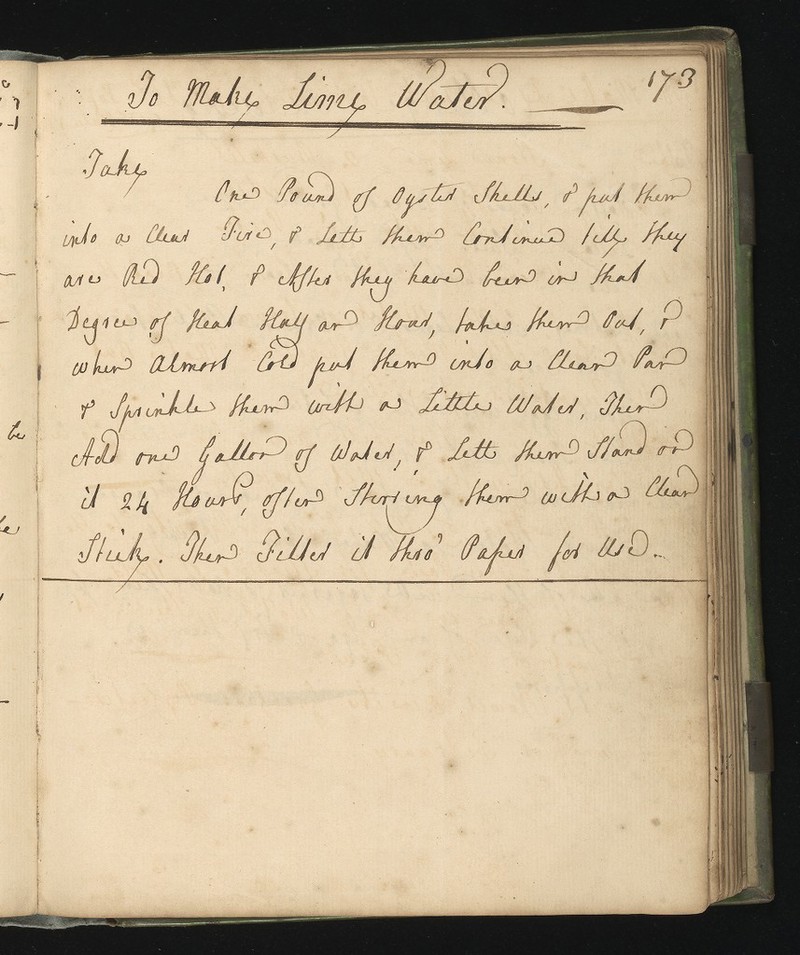 173
To Make Lime Water.
Take
One Pound of Oyster Shells, & put them
into a Clear Fire, & Lett them Continue till they
are Red Hot, & After they have been in that
Degree of Heat Half an Hour, take them Out, &
when Almost Cold put them into a Clean Pan
& Sprinkle them with a Little Water, Then
Add one Gallon of Water, & Lett them Stand on
it 24 Hours, often Stirring them with a Clean
Stick. Then Filter it thro' Paper for Use.
be